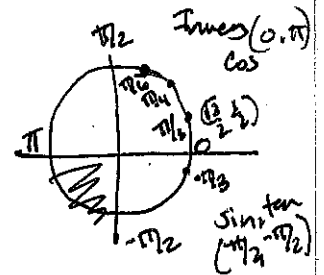 Inverses (0, π)
cos
π/2
π/6
π/4
π/3
(√3/2 1/2)
π
0
-π/3
-π/2
sin, tan
(-π/2, -π/2)